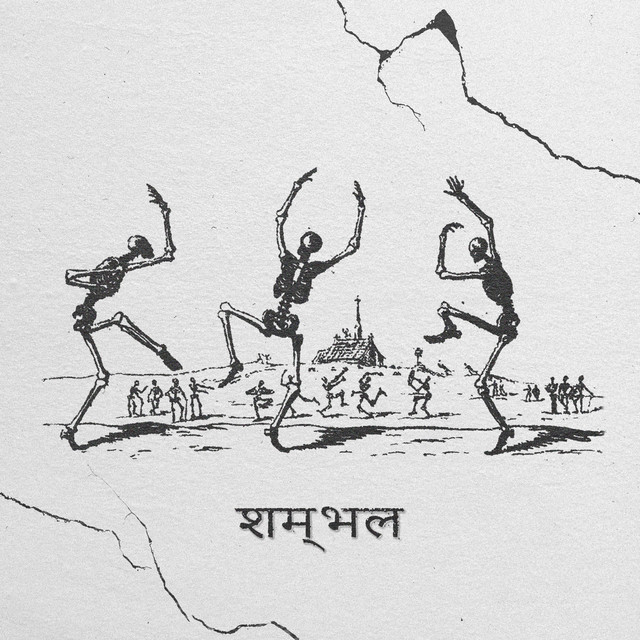 शम्‌भल